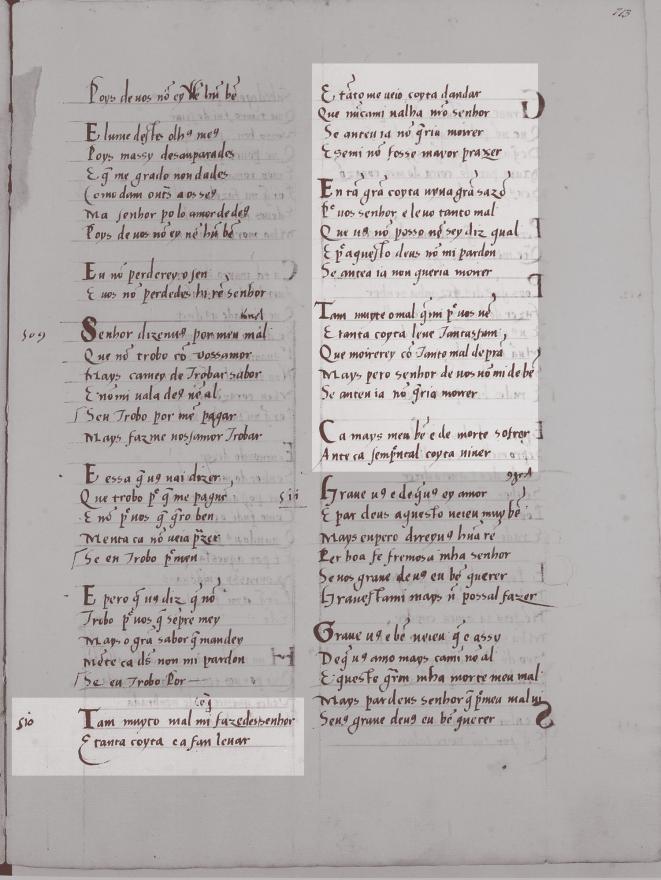 113
Poys de vos nō ey hū bē
E lume destes olhꝯ meꝯ
Poys massy desanparades
E q̄ me grado non dades
Como dam outs̄ aosseꝯ
Ma senhor polo amor dedeꝯ
Poys de vos nō ey nē hū bē
Eu nō perderey o sen
E vos nō perdedes hi rē senhor
509
Senhor dizenuꝯ por meu mal
Que nō trobo cō vossamor
Mays camey de Trobar sabor
E nō mi vala deꝯ nē al
Seu Trobo por mē pagar
Mays faz me vossamor Trobar
E essa q̄ uꝯ uai dizer
Que trobo pꝰ q̄ me pagnē
E nō pꝰ vos q̄ q̄ro ben
Menta ca nō veia p̄zer
Se eu Trobo pꝰmen
E pero q̄ uꝯ diz q̄ nō
Trobo pꝰ vos q̄ sēpre mey
Mays o grā sabor q̄ mandey
Mēte ca ds̄ non mi pardon
Se eu Trobo Por
510
Tam muyto mal mi fazedes senhor
E tanta coyta e afan levar
E tāto me veio coyta dandar
Que nūcami ualha nr̄o senhor
Se anteu ia nō q̄ria morrer
E semi nō fosse mayor prazer
En tā grā coyta uyua grā sazō
Pꝰ vos senhor e levo tanto mal
Que uꝯ nō posso nē sey diz qual
E pꝰ aquesto deus nō mi pardon
Se antea ia non queria morrer
Tam muyte o mal q̄ mi pꝰ vos vē
E tanta coyta leve Tantaffam
Que moirerey cō Tanto mal de prā
Mays pero senhor de vos nō mi de bē
Se anteu ia nō q̄ria morrer
Ca mays meu bē e de morte sofrer
Ante ca semp̄ en tal coyta viver
511
Grave uꝯ e deq̄uꝯ ey amor
E par deus aquesto veieu muy bē
Mays enpero direyuꝯ hūa rē
Per boa fe fremosa mha senhor
Se vos grave de uꝯ eu bē querer
Gravestami mays n̄ possal fazer
Grave uꝯ e bē veieu q̄ e assy
De q̄ uꝯ amo mays cami nē al
E questo grā mha morte meu mal
Mays par deus senhor q̄ pꝰmeu mal ui
Seuꝯ grave deuꝯ eu bē querer